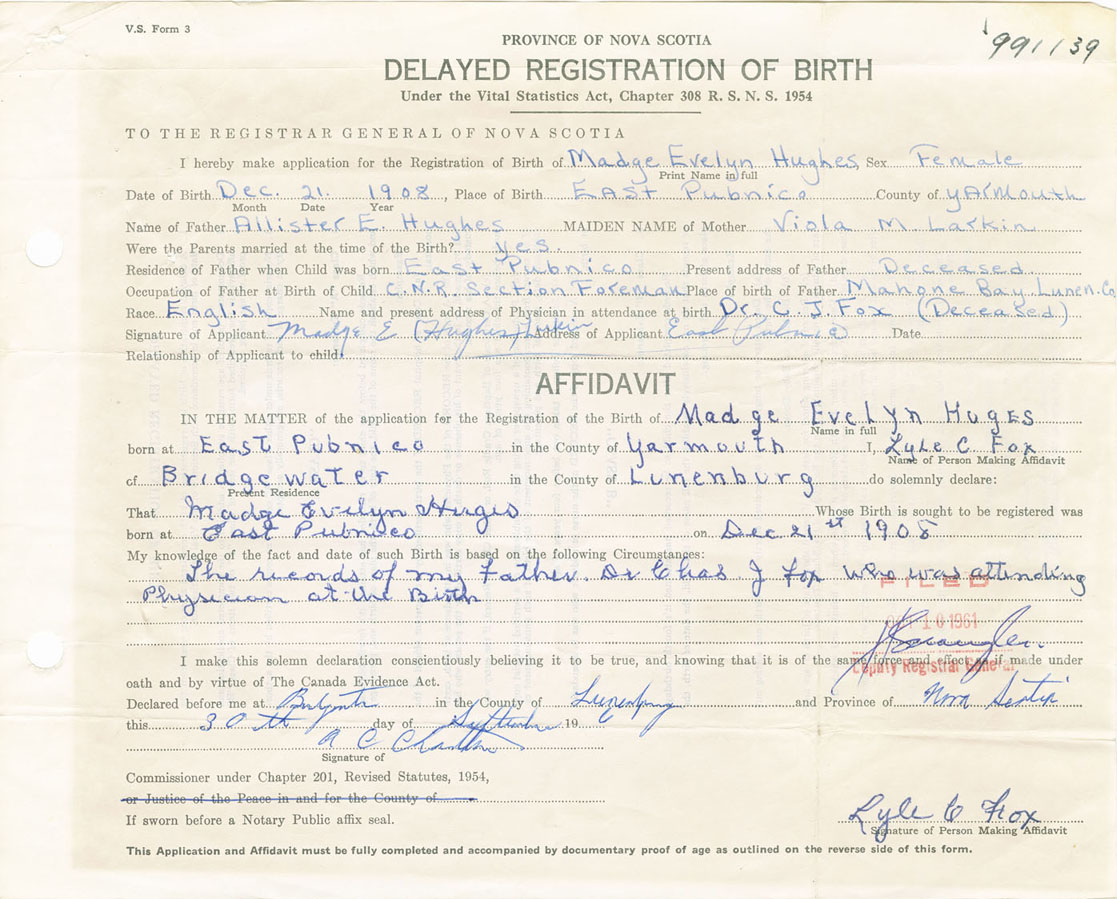 V.S. Form 3
991139
PROVINCE OF NOVA SCOTIA
DELAYED REGISTRATION OF BIRTH
Under the Vital Statistics Act, Chapter 308 R. S. N. S. 1954
TO THE REGISTRAR GENERAL OF NOVA SCOTIA
I hereby make application for the Registration of Birth of Madge Evelyn Hughes Sex Female
Print Name in full
Date of Birth Dec. 21. 1908, Place of Birth EAST Pubnico County of YArmouth
Month Date Year
Name of Father Allister E. Hughes MAIDEN NAME of Mother Viola M Larkin
Were the Parents married at the time of the Birth? yes.
Residence of Father when Child was born East Pubnico Present address of Father Deceased
Occupation of Father at Birth of Child C.N.R. Section Foreman Place of birth of Father Mahone Bay, Lunen. Co
Race English Name and present address of Physician in attendance at birth Dr. C. J. Fox (Deceased)
Signature of Applicant Madge E (Hughes) Larkin Address of Applicant East Pubnico Date
Relationship of Applicant to child
AFFIDAVIT
IN THE MATTER of the application for the Registration of the Birth of Madge Evelyn Huges
Name in full
born at East Pubnico in the County of Yarmouth I, Lyle C. Fox
Name of Person Making Affidavit
of Bridgewater in the County of Lunenburg do solemnly declare:
Present Residence
That Madge Evelyn Huges Whose Birth is sought to be registered was
born at East Pubnico on Dec 21st 1908
My knowledge of the fact and date of such Birth is based on the following Circumstances:
The records of my Father. Dr Chas J Fox who was attending
Physician at the Birth
FILED
10 1961
I make this solemn declaration conscientiously believing it to be true, and knowing that it is of the same force and effect as if made under
Deputy Registrar General
oath and by virtue of The Canada Evidence Act.
Declared before me at in the County of Lunenburg and Province of Nova Scotia
this 30th day of September 19
A C
Signature of
Commissioner under Chapter 201, Revised Statutes, 1954,
or Justice of the Peace in and for the County of
If sworn before a Notary Public affix seal.
Lyle C Fox
Signature of Person Making Affidavit
This Application and Affidavit must be fully completed and accompanied by documentary proof of age as outlined on the reverse side of this form.